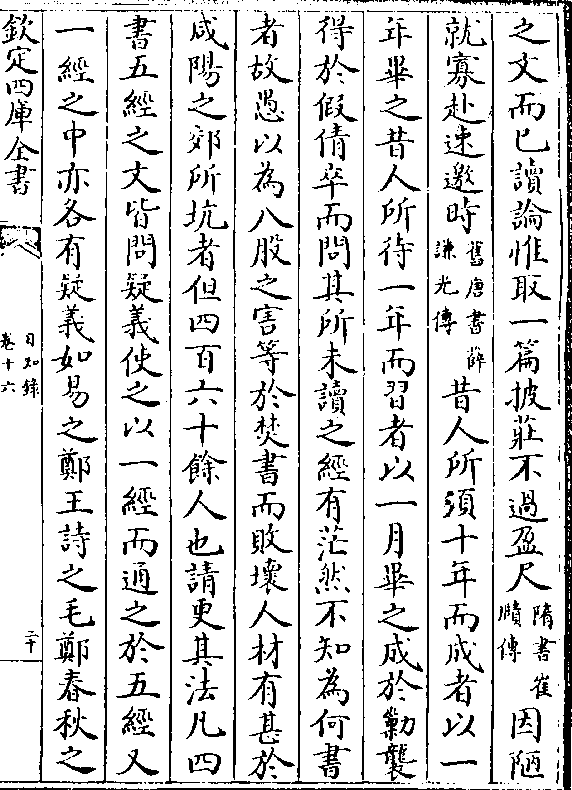 之文而已讀論惟取一篇披莊不過盈尺隋書崔賾傳因陋
就寡赴速邀時舊唐書薛謙光傳昔人所須十年而成者以一
年畢之昔人所待一年而習者以一月畢之成於勦襲
得於假倩卒而問其所未讀之經有茫然不知為何書
者故愚以為八股之害等於焚書而敗壞人材有甚於
咸陽之郊所坑者但四百六十餘人也請更其法凡四
書五經之文皆問疑義使之以一經而通之於五經又
一經之中亦各有疑義如易之鄭王詩之毛鄭春秋之
欽定四庫全書
日知錄
卷十六
二十